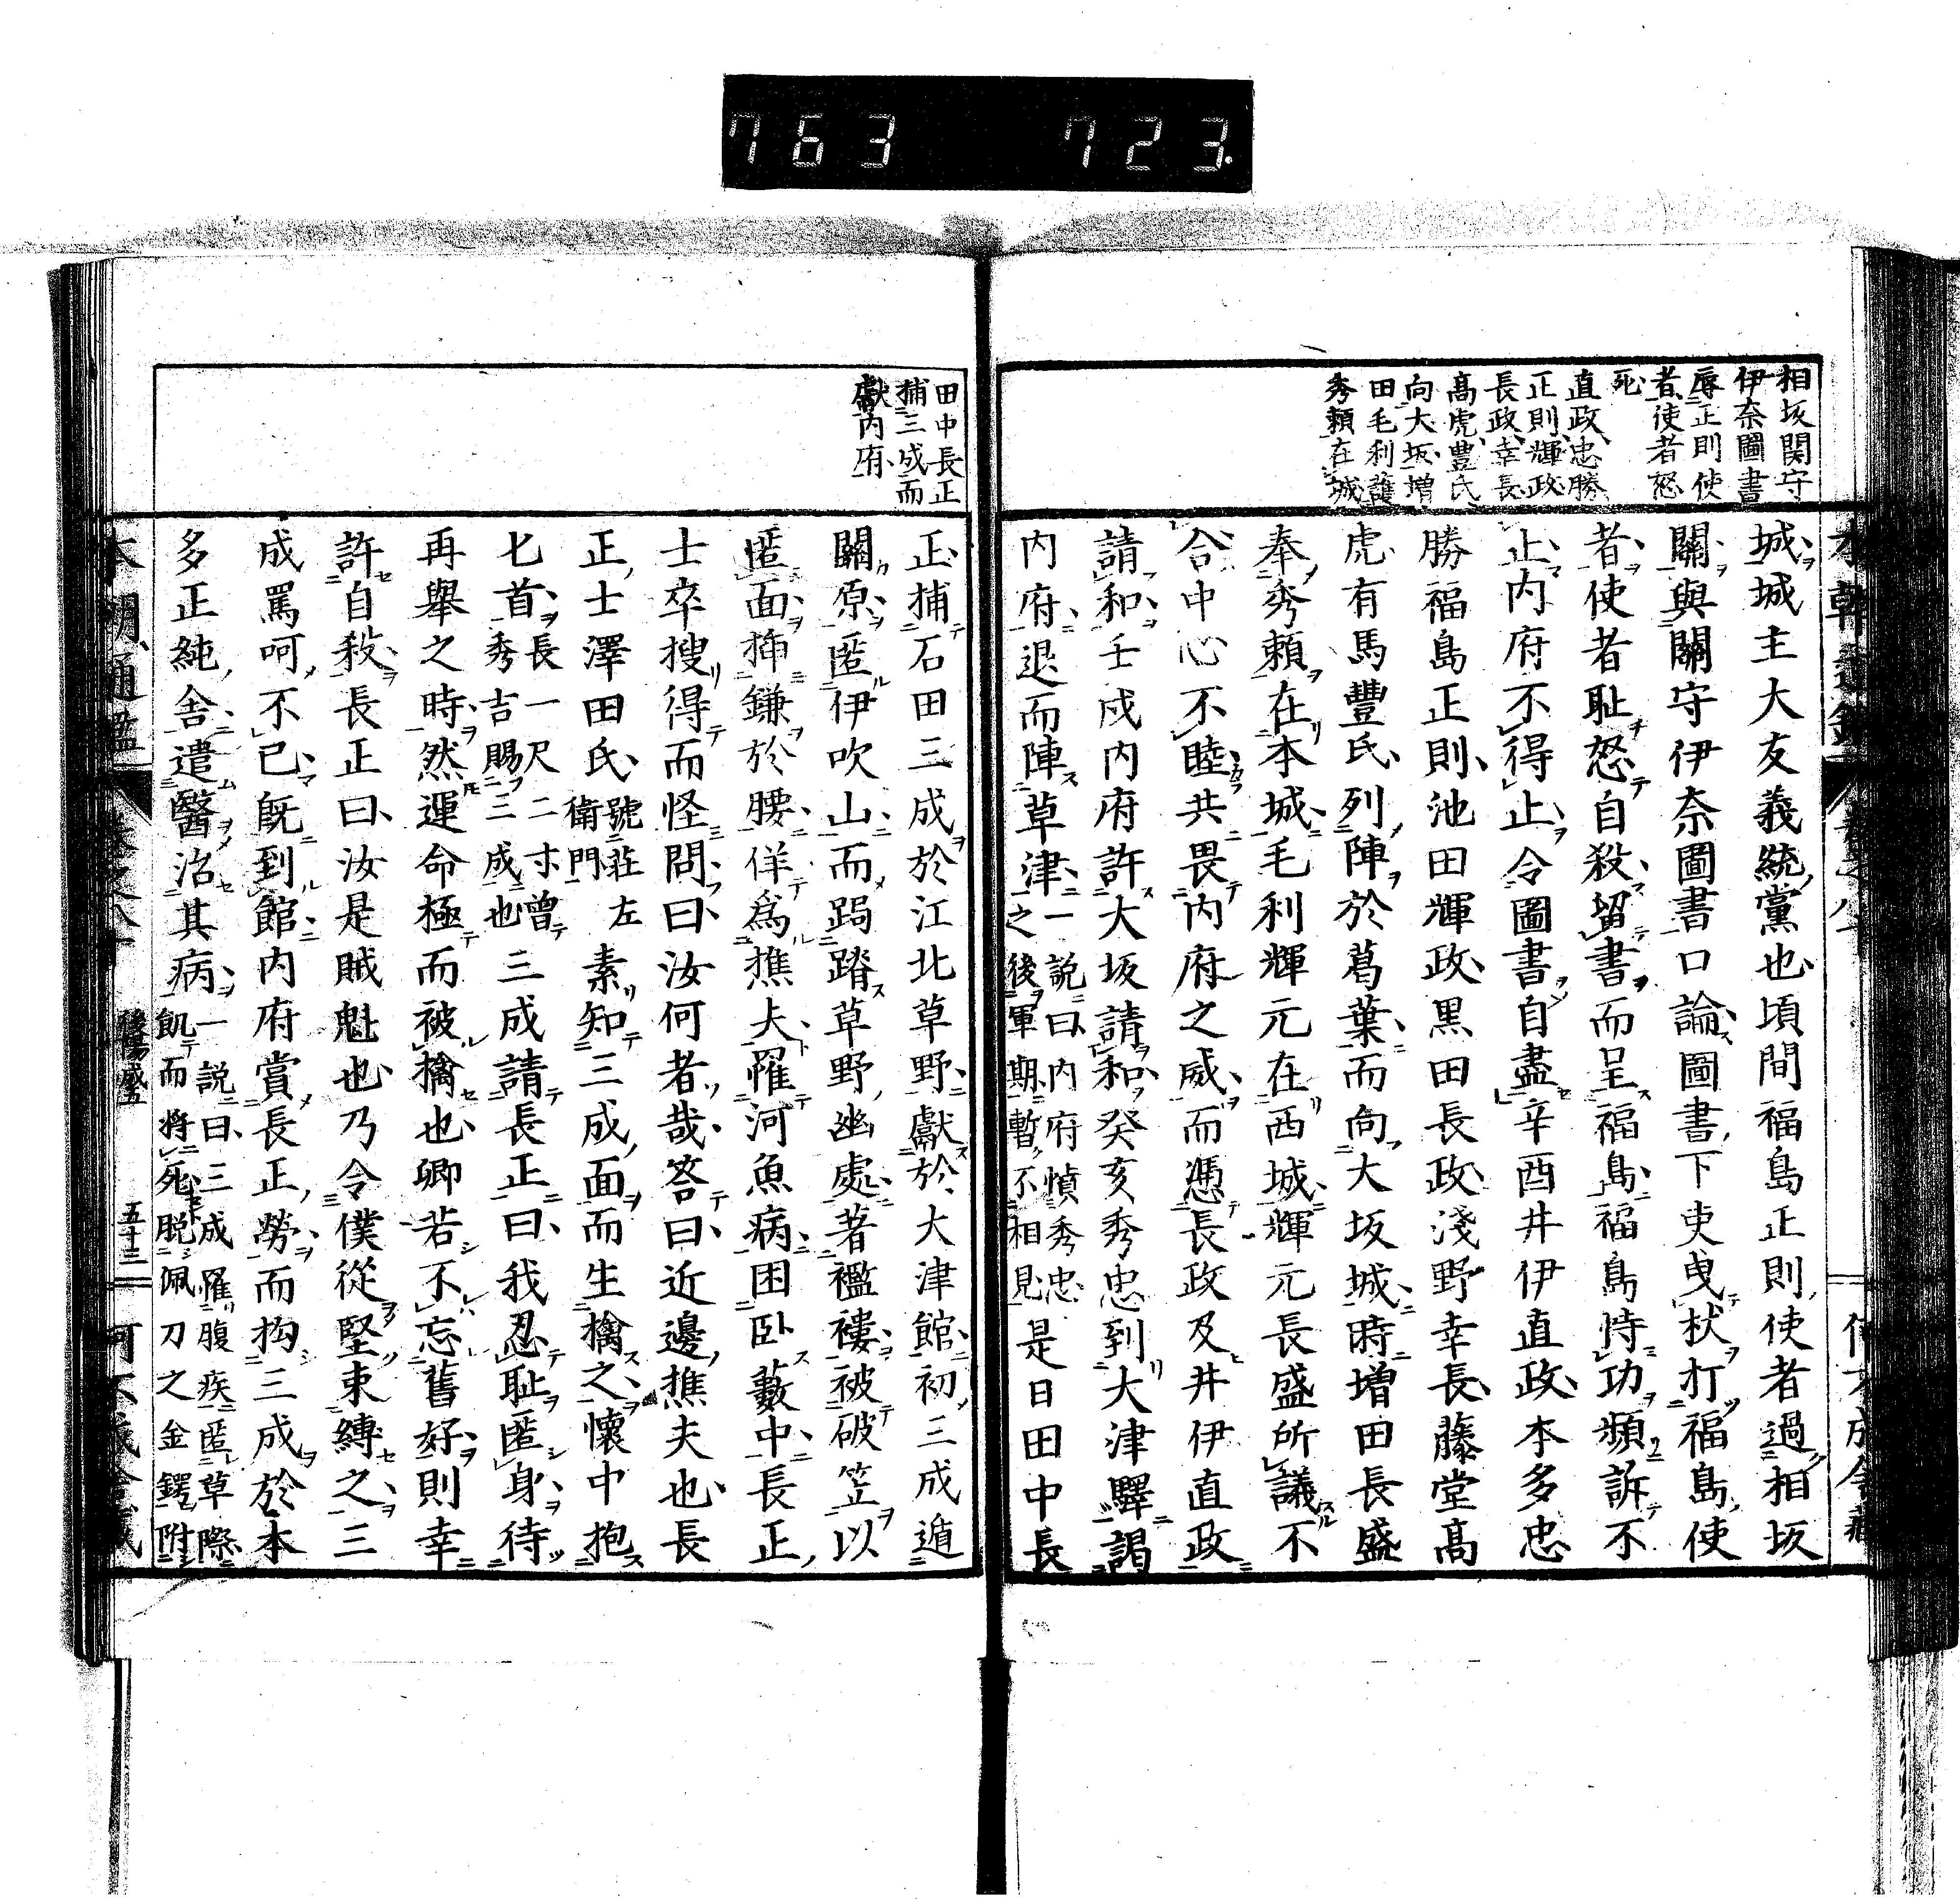 763 723
相坂関守
伊奈圖書
辱正則使
者使者怒
死
直政忠勝
正則輝政
長政幸長
高虎豊氏
向大坂増
田毛利護
秀頼在城
城城主大友義統黨也頃間福島正則使者過相坂
關與關守伊奈圖書口論圖書下吏曳杖打福島使
者使者耻怒自殺留書而呈福島福島恃功頻訴不
止内府不得止令圖書自盡辛酉井伊直政本多忠
勝福島正則池田輝政黒田長政淺野幸長藤堂高
虎有馬豐氏列陣於葛葉而向大坂城時増田長盛
奉秀頼在本城毛利輝元在西城輝元長盛所議不
合中心不睦共畏内府之威而憑長政及井伊直政
請和壬戌内府許大坂請和癸亥秀忠到大津驛謁
内府退而陣草津一説曰内府憤秀忠之後軍期暫不相見是日田中長
田中長正
捕三成而
獻内府
正捕石田三成於江北草野獻於大津館初三成遁
關原匿伊吹山而跼蹐草野幽處著襤褸被破笠以
匿面揷鎌於腰佯爲樵夫罹河魚病困臥藪中長正
士卒搜得而怪問曰汝何者哉答曰近邊樵夫也長
正士澤田氏號莊左衛門素知三成面而生擒之懷中抱
匕首長一尺二寸曾秀吉賜三成也三成請長正曰我忍耻匿身待
再舉之時然運命極而被擒也卿若不忘舊好則幸
許自殺長正曰汝是賊魁也乃令僕從堅束縛之三
成罵呵不已既到館内府賞長正勞而拘三成於本
多正純舎遣醫治其病一説曰三成罹腹疾匿草際飢而將死脱佩刀之金鍔附
本朝通鑑
後陽成五
五十三